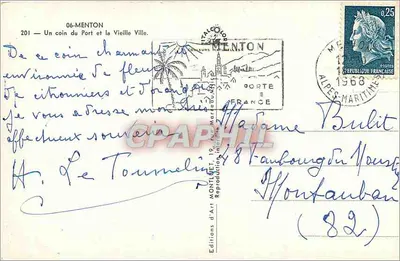 06-MENTON
201 — Un coin du Port et la Vieille Ville.
De ce coin charmant et
environné de fleurs
de citronniers et d'orangers
je vous adresse mon très
affectueux souvenir
H Le Toumelin
MENTON
PORTE
FRANCE
0,25
REPUBLIQUE FRANÇAISE
1968
ALPES-MARITIMES
Editions d'Art MONTLUET, 19,
Reproduction
CPAPHIL
Madame Bulit
Faubourg du Moustier
Montauban
(82)